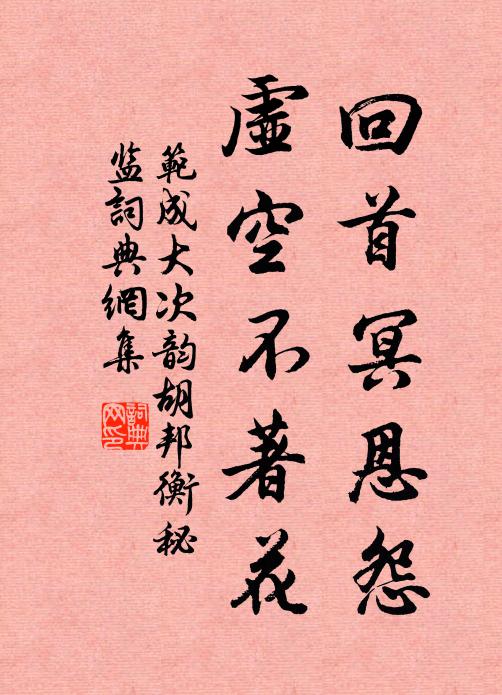 回首冥恩怨
虛空不著花
範成大次韵胡邦衡秘
监詞典網集
詞典
网印